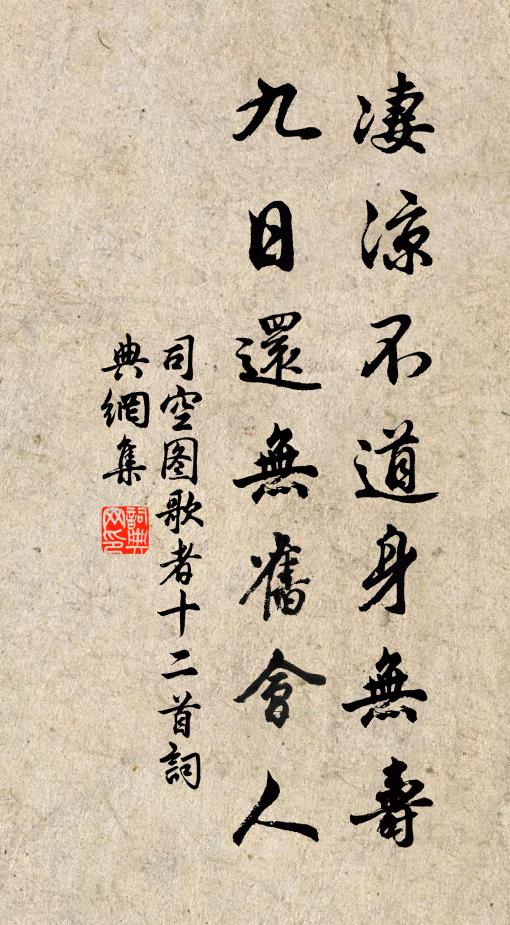 凄涼不道身無壽
九日還無舊會人
司空图歌者十二首詞
典網集
詞典
网印